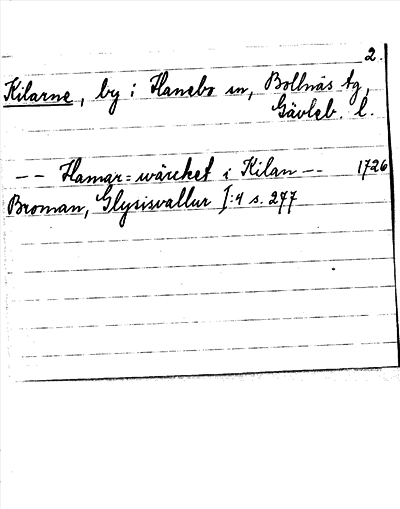 2.
Kilarne, by i Hanebo sn, Bollnäs tg,
Gävleb. l.
-- Hamar=wärcket i Kilan -- 1726
Broman, Glysisvallur I:4 s. 277